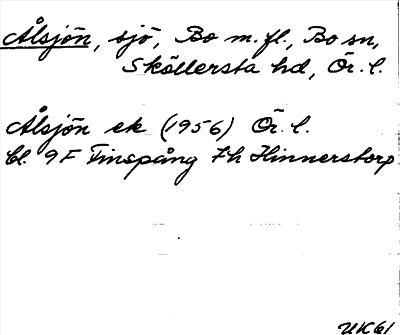 Ålsjön, sjö, Bo m.fl., Bo sn,
Sköllersta hd, Ör. l.
Ålsjön ek (1956) Ör. l.
bl. 9F Finspång 7h Hinnerstorp
UK61